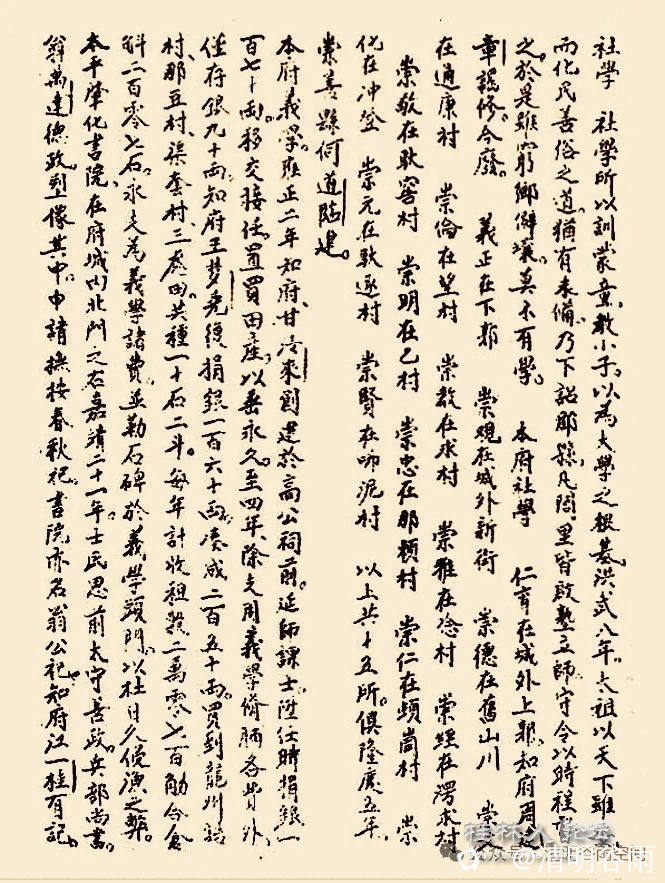 社學 社學所以訓蒙童教小子。以爲大學之根基。洪武八年。太祖以天下雖
而化民善俗之道。猶有未備。乃下詔郡縣。凡閭里皆啟塾立師。守令以時程
之。於是雖窮鄉僻壤。莫不有學。 本府社學 仁育在城外上郭。知府周
章 修。今廢。 義正在下郭 崇觀在城外新街 崇德在舊山川 崇
在通康村 崇倫在望村 崇教在求村 崇雅在念村 崇經在濁水村
崇敬在馱窖村 崇明在乙村 崇忠在那頓村 崇仁在頓崗村 崇
化在沖登 崇元在馱逐村 崇賢在咘泥村 以上共十五所。俱隆慶五年。
崇善縣何道臨建。
本府義學。雍正二年知府甘汝來創建於高公祠前。延師課士。陞任時捐銀一
百七十兩。移交接任。置買田產。以垂永久。至四年。除支用義學脩脯各費外。
僅存銀九十兩。知府王夢堯復捐銀一百六十兩。湊成二百五十兩。買到龍州
村。那豆村。渠奎村。三處田。共種一十石二斗。每年計收租穀二萬零七百觔。合倉
斛二百零七石。永支爲義學諸費。並勒石碑於義學頭門。以杜日久侵漁之弊。
太平肇化書院。在府城內北門之右。嘉靖二十一年。士民思前太守善政。兵部尚書。
翁萬達德政。塑像其中。申請撫按春秋祀。書院亦名翁公祀。知府江一桂有記。
桂林人论坛
清明谷雨